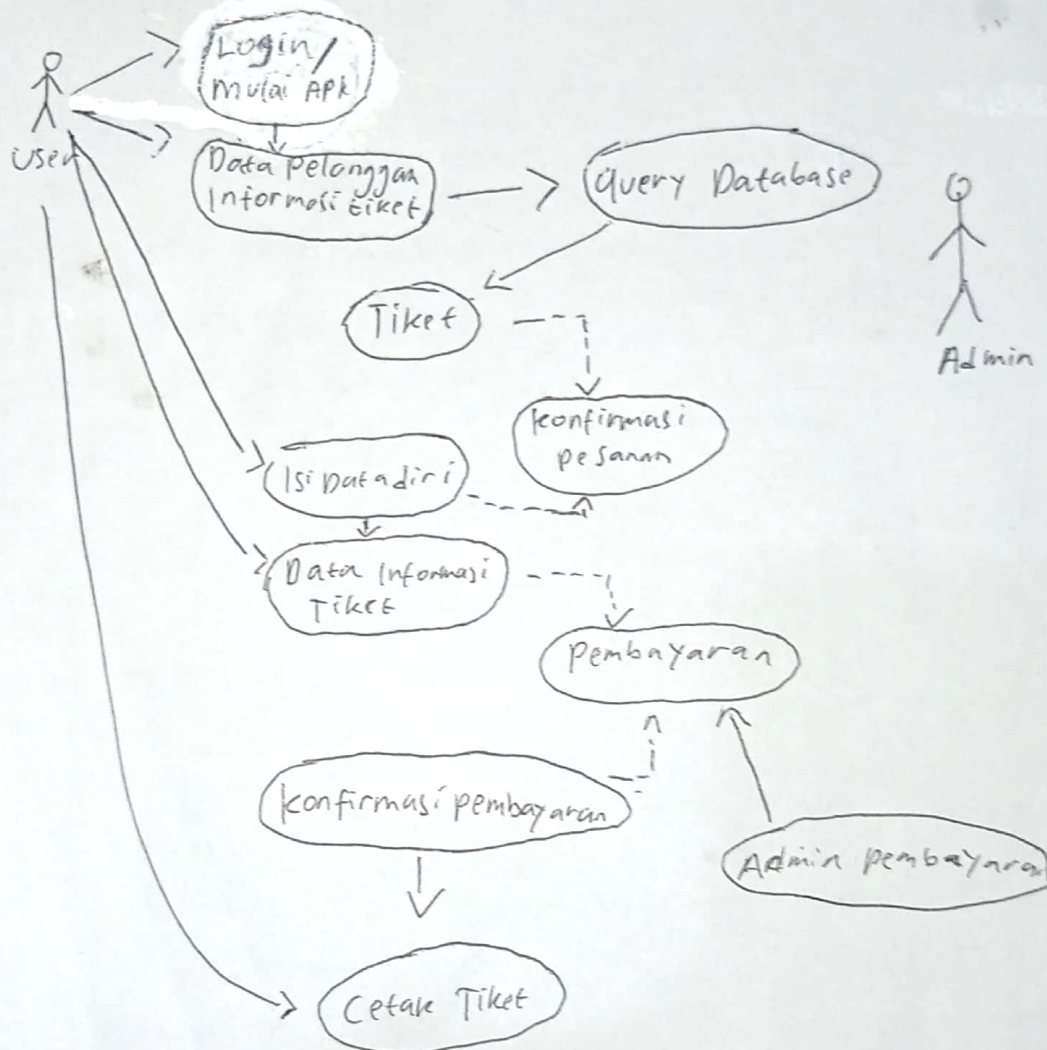 Login/
Mulai APK
User
Data pelanggan
Informasi tiket
Query Database
Tiket
Admin
konfirmasi
pesanan
Isi Data diri
Data Informasi
Tiket
pembayaran
konfirmasi pembayaran
Admin pembayaran
Cetak Tiket